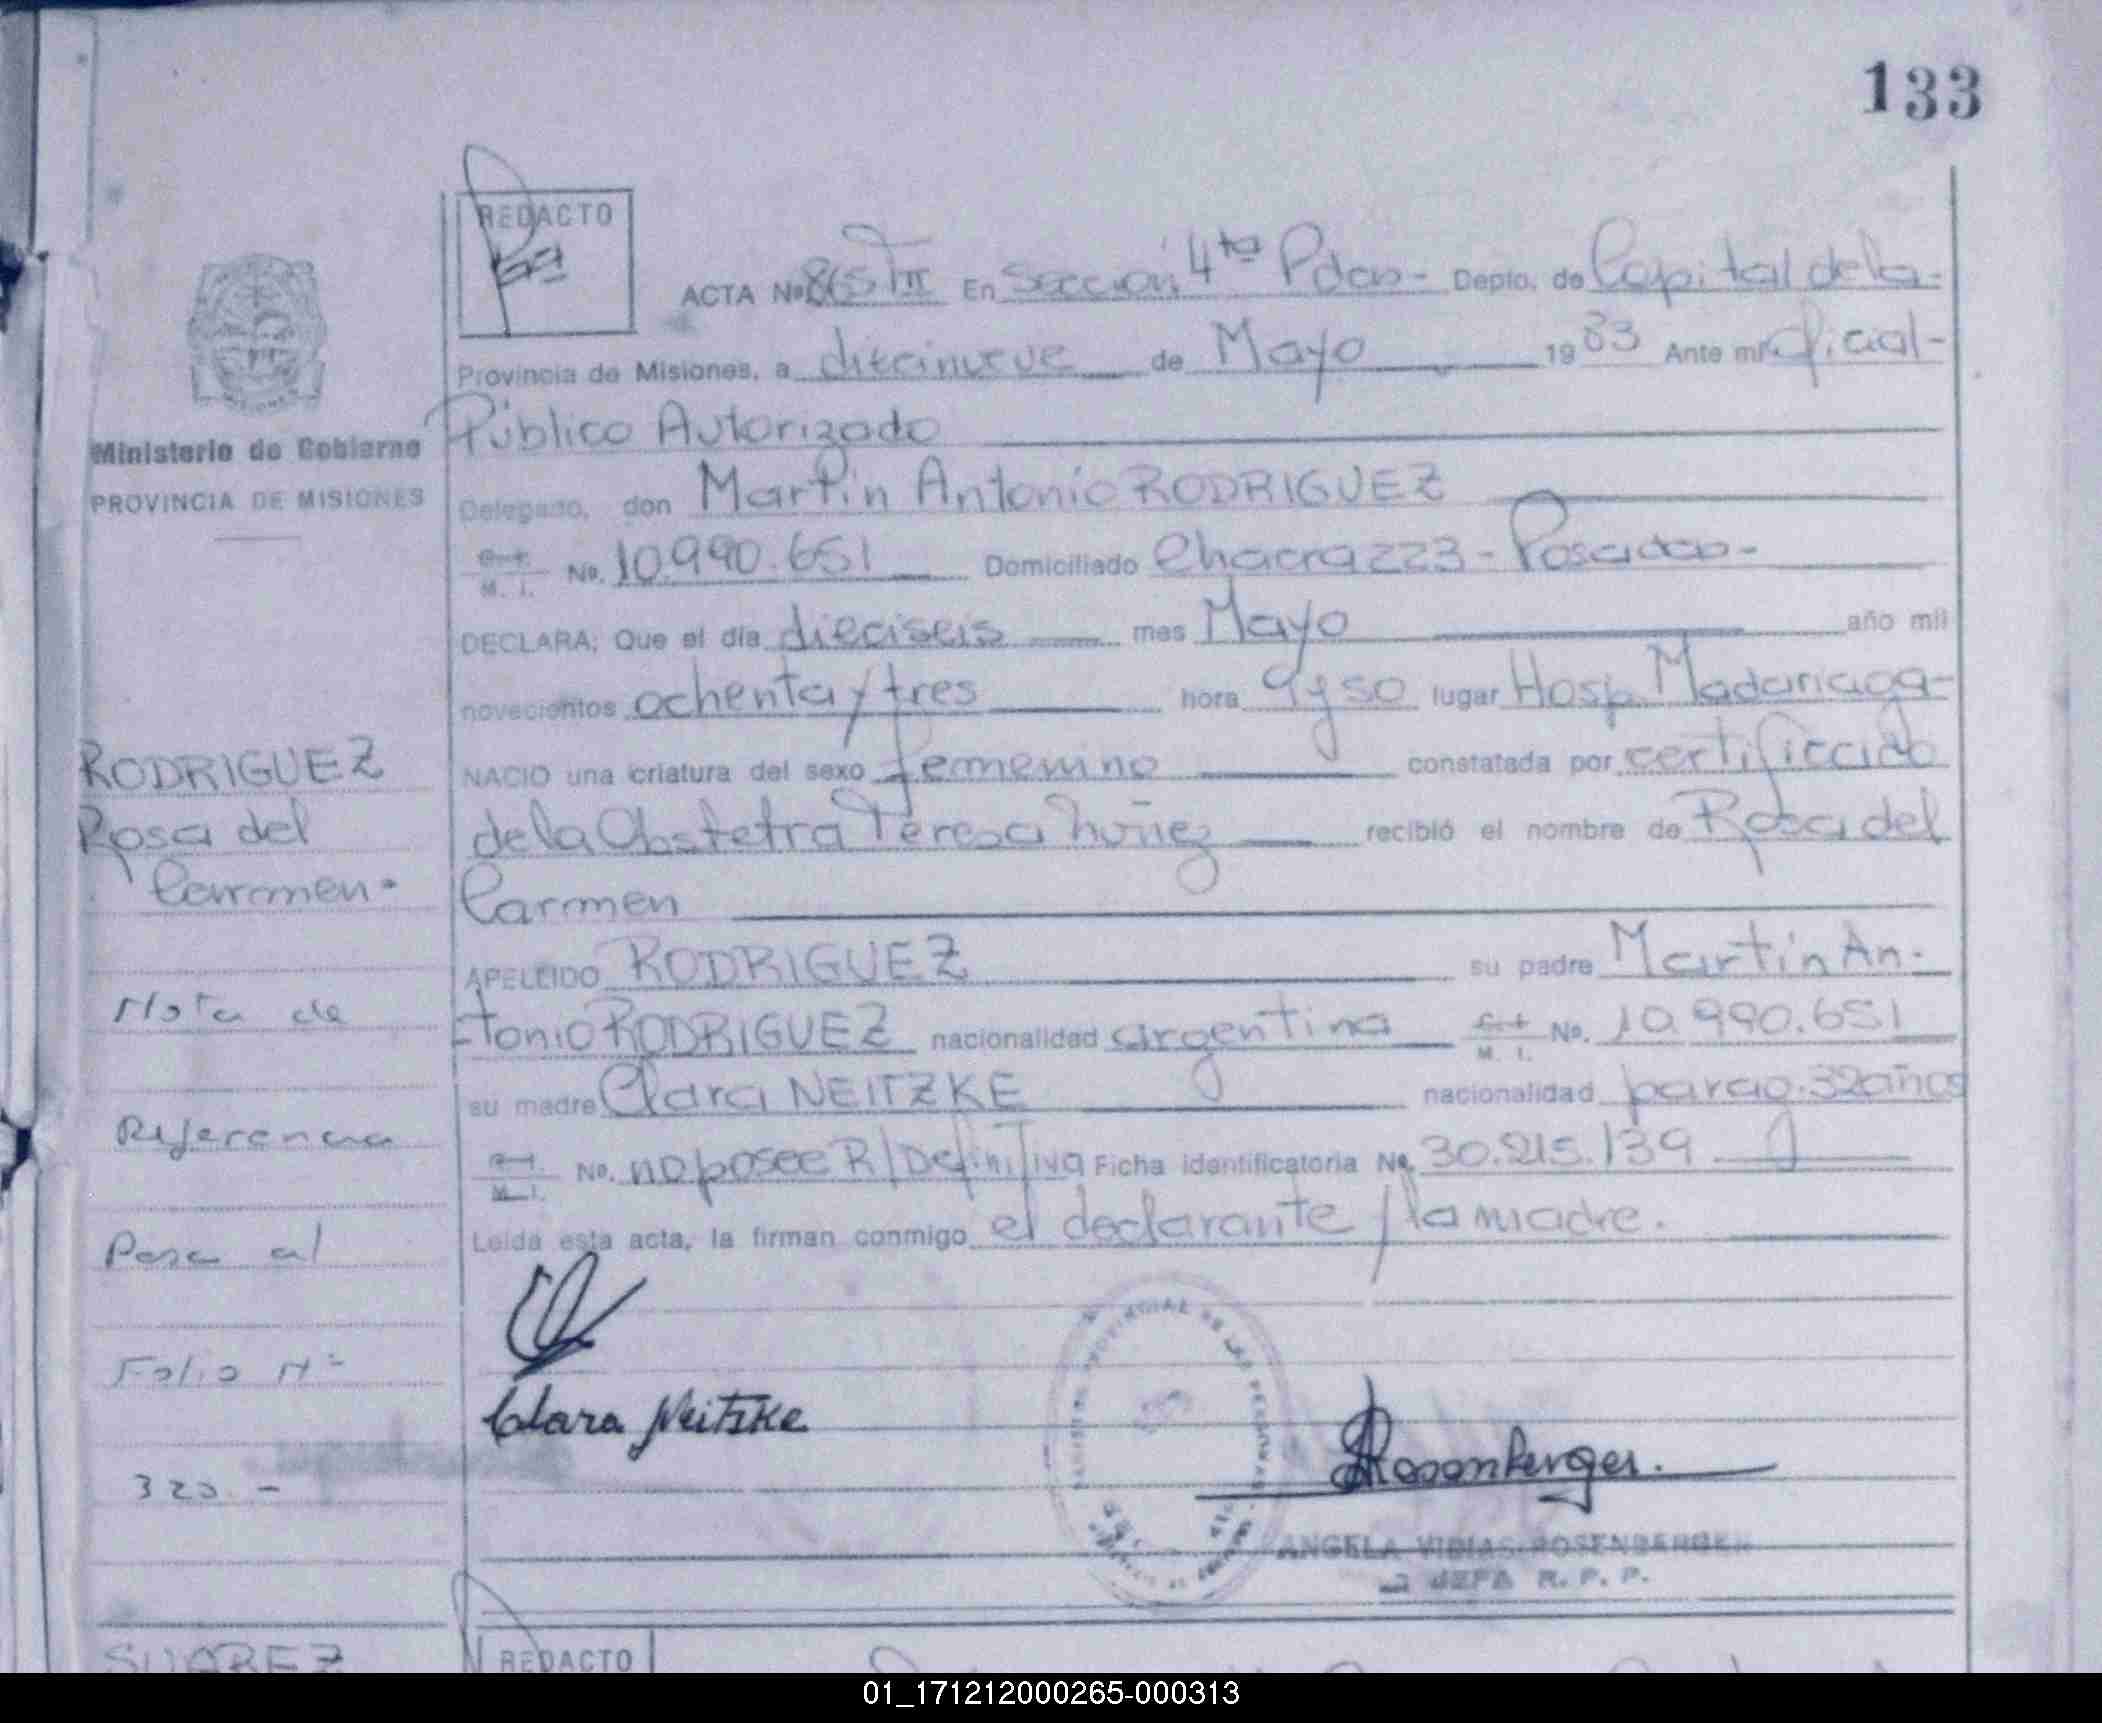 133
REDACTO
ACTA No 865 TIII En Sección 4ta Pdas- Depto. de Capital de la-
Provincia de Misiones, a diecinueve de Mayo 1983 Ante mí Oficial-
Público Autorizado
Ministerio de Gobierno
PROVINCIA DE MISIONES
Delegado, don Martín Antonio RODRIGUEZ
M. I. No. 10.990.651 Domiciliado Chacra 223 - Posadas-
DECLARA; Que el día dieciseis mes Mayo año mil
novecientos ochenta y tres hora 9 y 50 lugar Hosp. Madariaga-
RODRIGUEZ
Rosa del
Carmen-
NACIO una criatura del sexo femenino constatada por certificado
de la Obstetra Teresa Nuñez recibió el nombre de Rosa del
Carmen
APELLIDO RODRIGUEZ su padre Martín An-
tonio RODRIGUEZ nacionalidad argentina M. I. No. 10.990.651
su madre Clara NEITZKE nacionalidad parag. 32 años
M. I. No. no posee R/Definitiva Ficha identificatoria No. 30.215.139
Leída esta acta, la firman conmigo el declarante y la madre.
Nota de
Referencia
Pasa al
Folio Nº
320 -
Clara Neitzke
Rosenberger.
ANGELA VIDIAS ROSENBERGER
JEFA R. P. P.
SUAREZ
REDACTO
01_171212000265-000313